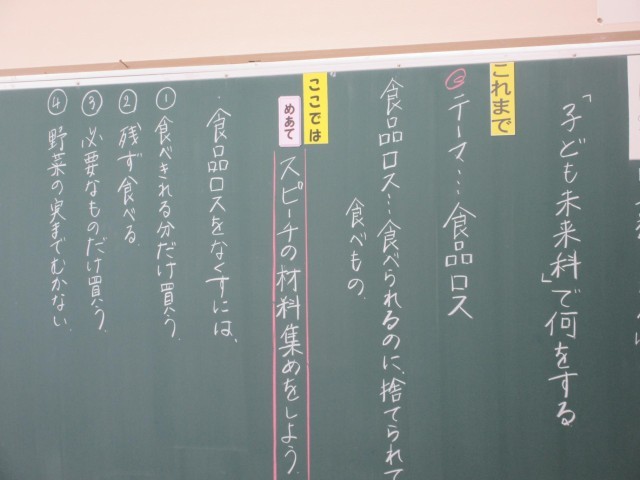 「子ども未来科」で何をする
これまで
テーマ…食品ロス
食品ロス…食べられるのに、捨てられて
食べもの。
ここでは
めあて
スピーチの材料集めをしよう。
食品ロスをなくすには、
① 食べきれる分だけ買う。
② 残ず食べる。
③ 必要なものだけ買う。
④ 野菜の実までむかない。